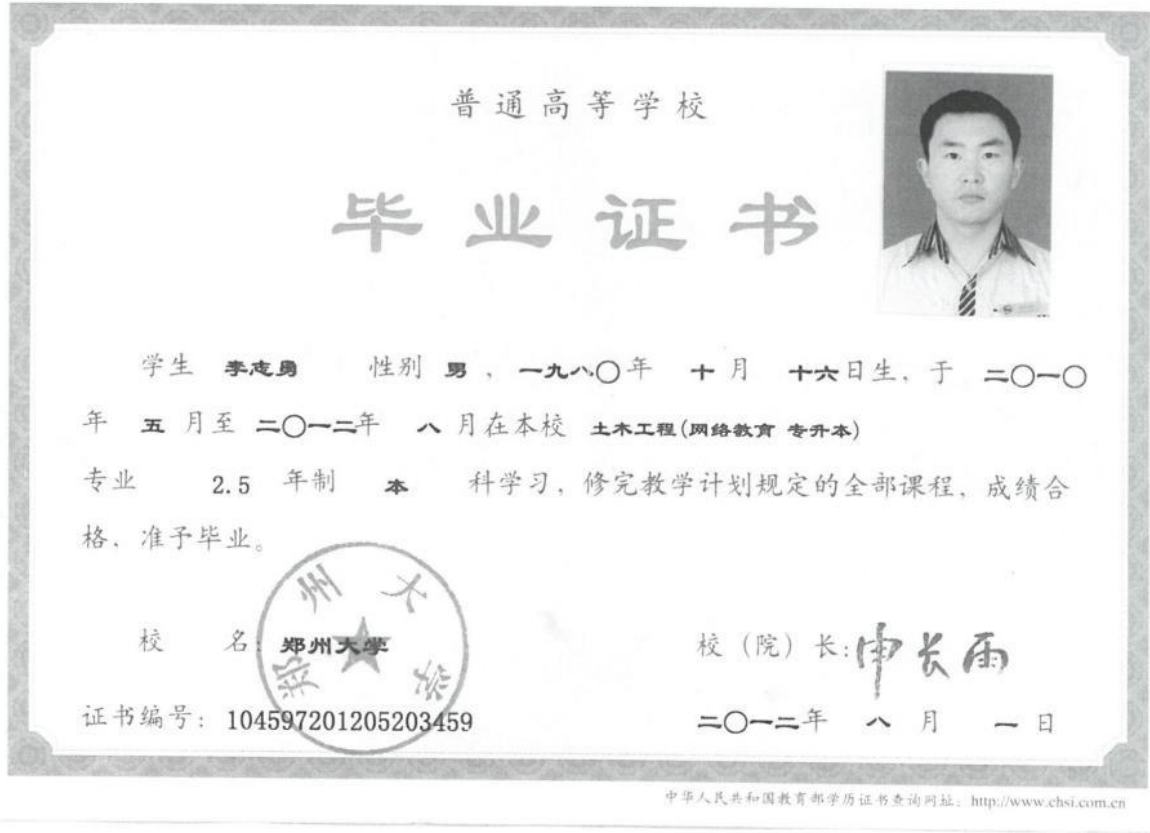 普通高等学校
毕业证书
学生 李志勇 性别 男 、一九八〇年 十月 十六日生、于 二〇一〇
年 五 月至 二〇一二年 八 月在本校 土木工程(网络教育 专升本)
专业 2.5 年制 本 科学习、修完教学计划规定的全部课程、成绩合
格、准予毕业。
郑州大学
校 名: 郑州大学 校（院）长: 申长雨
证书编号: 104597201205203459 二〇一二年 八 月 一 日
中华人民共和国教育部学历证书查询网址: http://www.chsi.com.cn